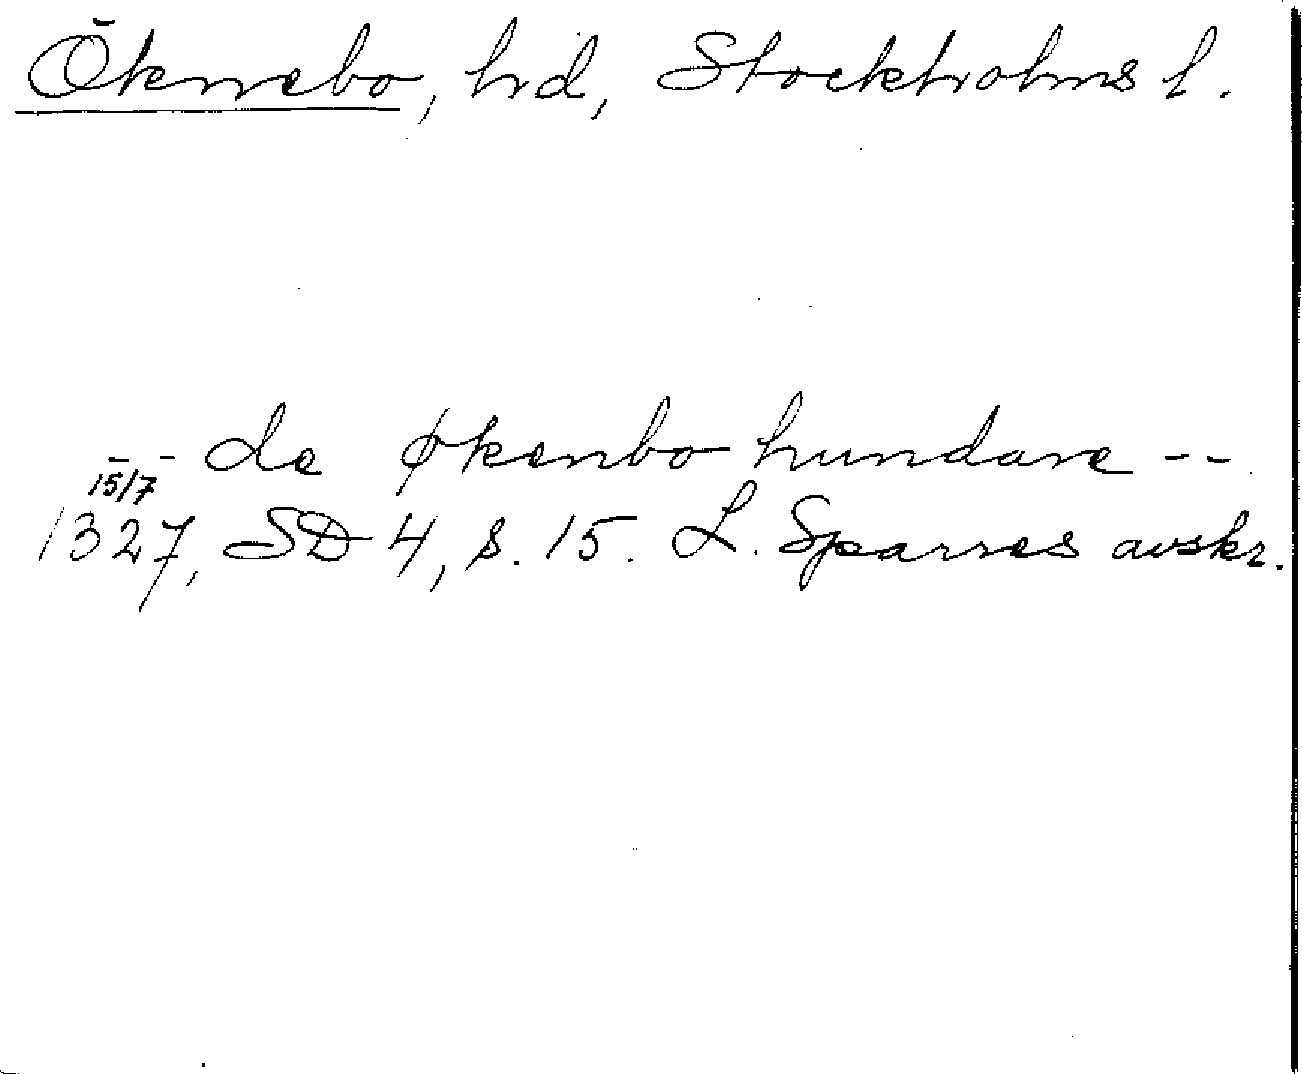 Öknebo, hd, Stockholms l.
-- de økenbo hundare --
15/7
1327, SD 4, s. 15. L. Sparres avskr.